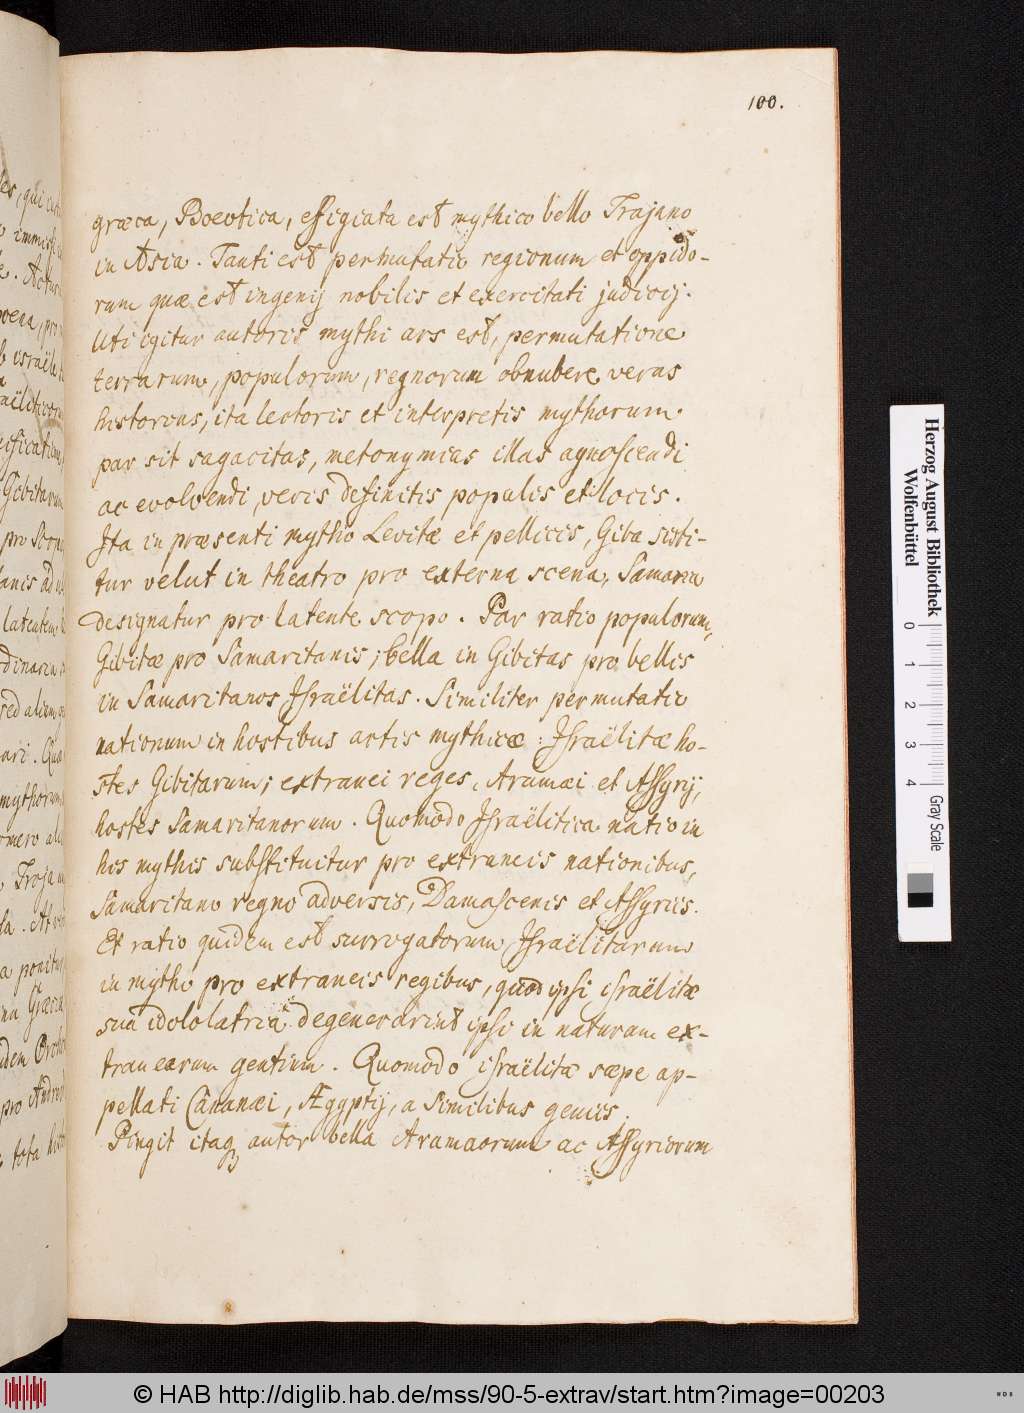 100.
græca, Boeotica, effigiata est mythico bello Trajano
in Asia. Tanti est permutatio regionum et oppido-
rum quæ est ingenij nobilis et exercitati judicij.
Uti igitur autoris mythi ars est, permutatione
terrarum, populorum, regnorum obnubere veras
historias, ita lectoris et interpretis mythorum
par sit sagacitas, metonymias illas agnoscendi
ac evolvendi, veris definitis populis et locis.
Ita in præsenti mytho Levitæ et pellicis, Giba sisti-
tur velut in theatro pro externa scena, Samaria
designatur pro latente scopo. Par ratio populorum,
Gibitæ pro Samaritanis; bella in Gibitas pro bellis
in Samaritanos Israëlitas. Similiter permutatio
nationum in hostibus artis mythicæ: Israëlitæ ho-
stes Gibitarum; extranei reges, Aramæi et Assyrij,
hostes Samaritanorum. Quomodo Israëlitica natio in
his mythis substituitur pro extraneis nationibus,
Samaritano regno adversis, Damascenis et Assyriis.
Et ratio quidem est surrogatorum Israëlitarum
in mytho pro extraneis regibus, quod ipsi israëlitæ
suâ idololatriâ degenerarint ipsi in naturam ex-
tranearum gentium. Quomodo israëlitæ sæpe ap-
pellati Cananæi, Ægyptij, a similibus geniis.
Pingit itaq autor bella Aramæorum ac Assyriorum
Herzog August Bibliothek
Wolfenbüttel
0 1 2 3 4
Gray Scale
© HAB http://diglib.hab.de/mss/90-5-extrav/start.htm?image=00203